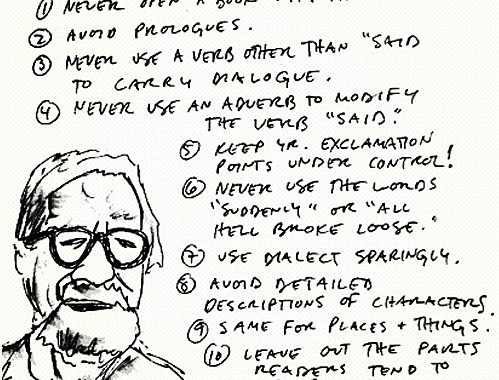 ① NEVER OPEN A BOOK
② AVOID PROLOGUES.
③ NEVER USE A VERB OTHER THAN "SAID
TO CARRY DIALOGUE.
④ NEVER USE AN ADVERB TO MODIFY
THE VERB "SAID".
⑤ KEEP YR. EXCLAMATION
POINTS UNDER CONTROL!
⑥ NEVER USE THE WORDS
"SUDDENLY" OR "ALL
HELL BROKE LOOSE."
⑦ USE DIALECT SPARINGLY.
⑧ AVOID DETAILED
DESCRIPTIONS OF CHARACTERS.
⑨ SAME FOR PLACES + THINGS.
⑩ LEAVE OUT THE PARTS
READERS TEND TO